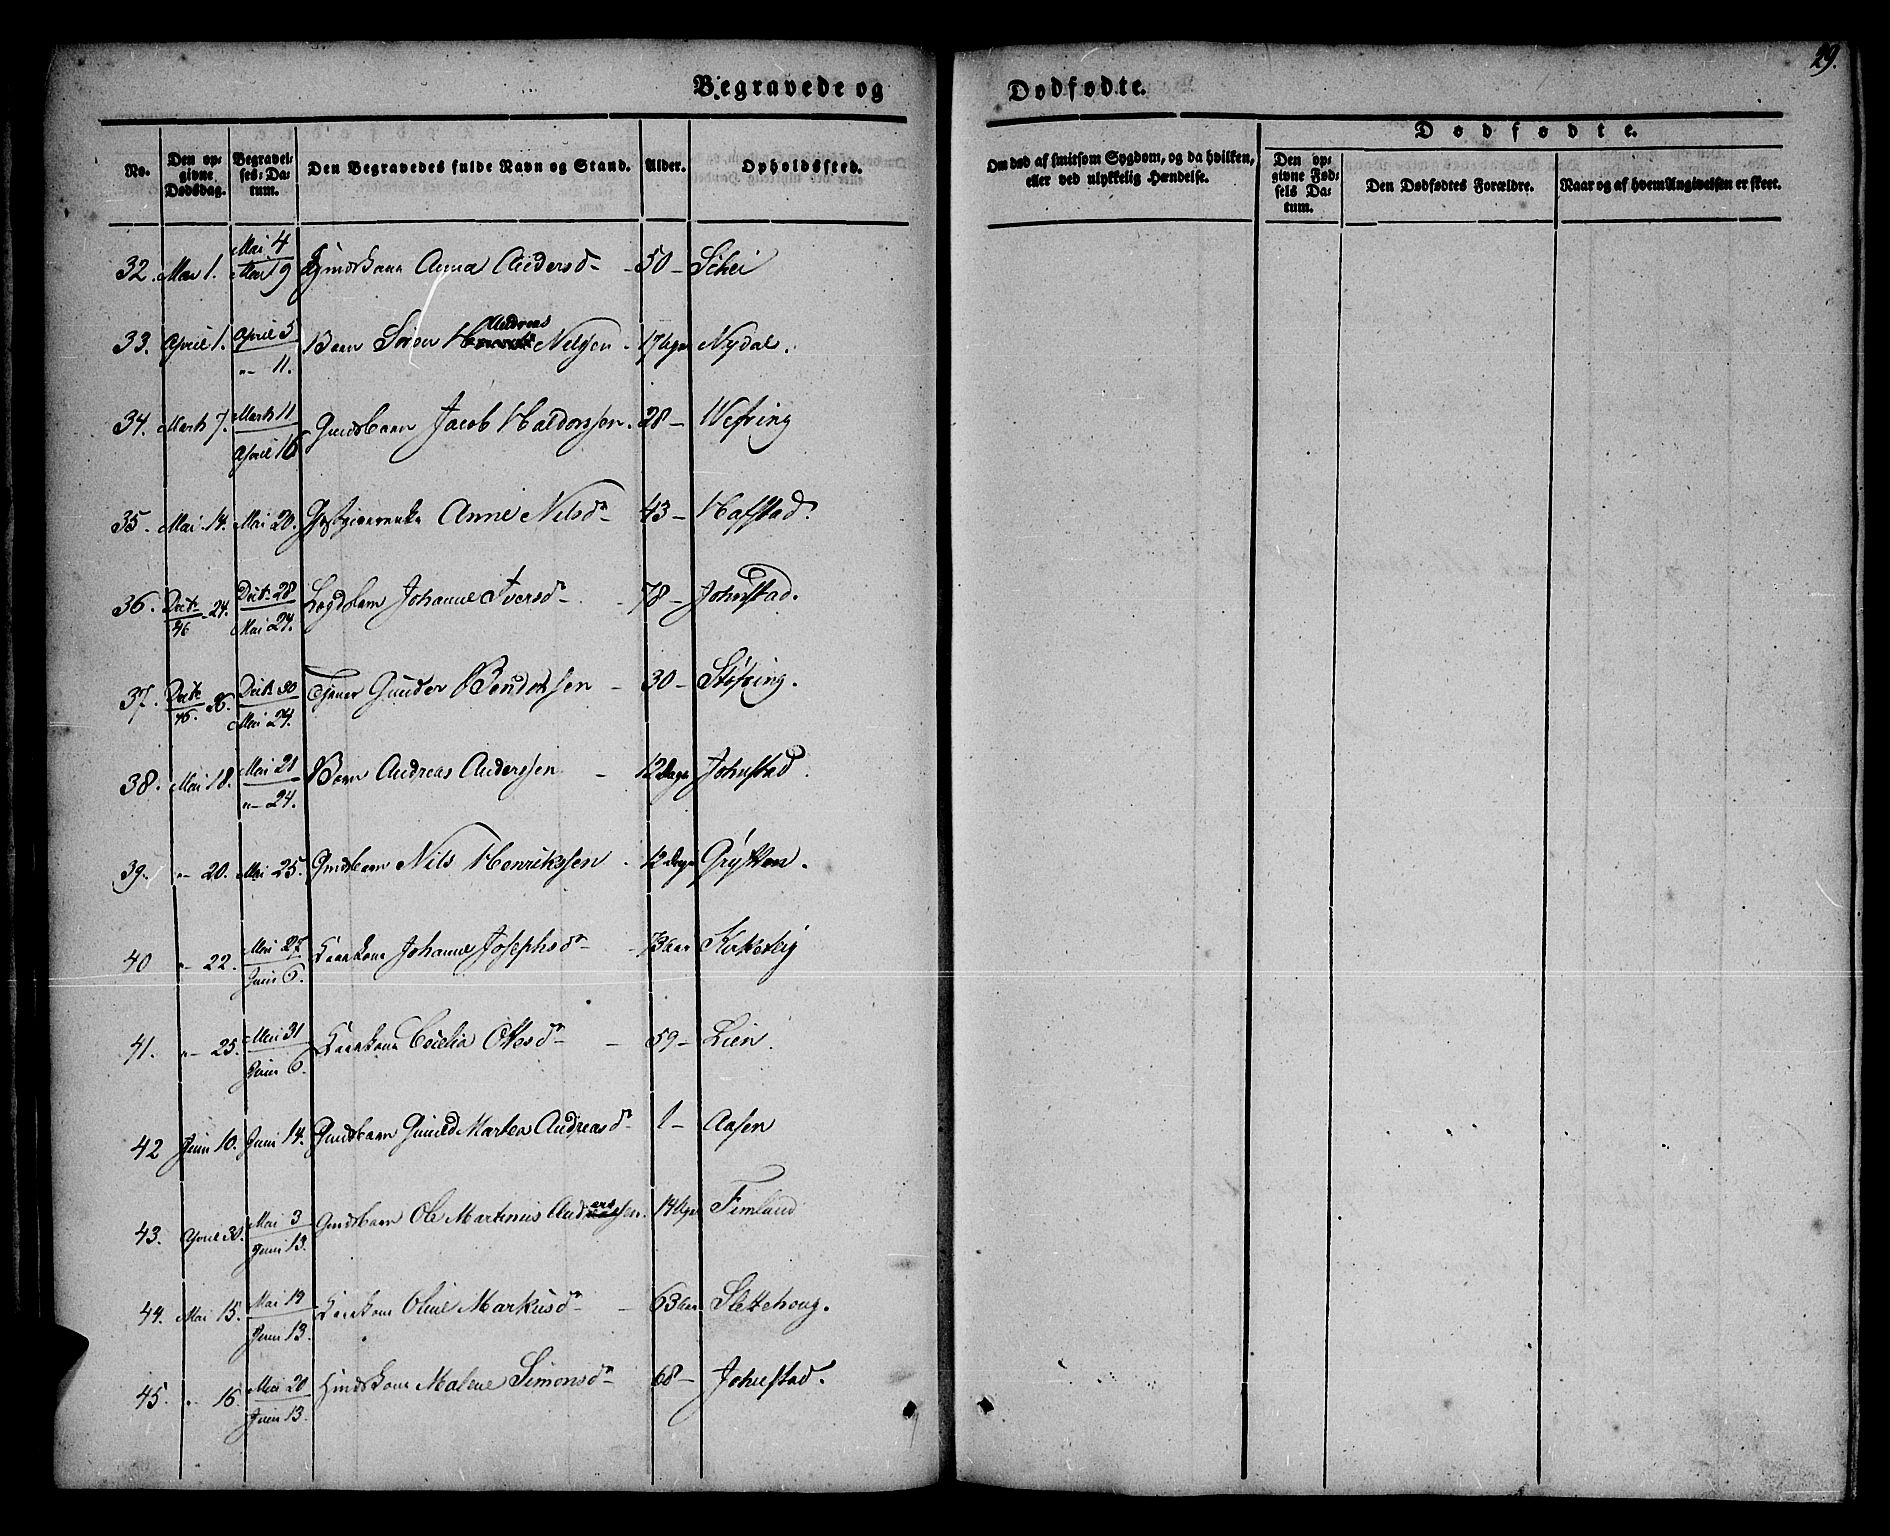 29.
Begravede og Dødfødte.
No. Den opgivne Dødsdag. Begravelses-Datum. Den Begravedes fulde Navn og Stand. Alder. Opholdssted.
Om død af smitsom Sygdom, og da hvilken, eller ved ulykkelig Hændelse.
Dødfødte.
Den opgivne Fødsels Datum. Den Dødfødtes Forældre. Naar og af hvem Angivelsen er skeet.
32. Mai 1. Mai 4 Mai 9 Anna Andersd 50 - Schei
33. April 1. April 5 " 11. Barn Søren Andreas Nilsen. 17 Nydal.
34. Marts 7. Marts 11 April 16 Gmdsbarn Jacob Haldorssen. 28 - Wefring
35. Mai 14. Mai 20. Anne Nilsd 43 - Hafstad.
36. Decbr 24. 46 Decbr 28 Mai 24. Lægdslem Johanne Iversd 78 - Johnstad.
37. Decbr 26. Decbr 30 Mai 24. Tjener Gunder Bendixsen - 30 - Støfring.
38. Mai 18. Mai 21 " 24. Barn Andreas Anderssen - 12 Dage Johnstad.
39. " 20. Mai 25. Gmdsbarn Nils Henrikssen. 12 Dage Grytten.
40 " 22. Mai 27 Juni 6. Kaarkone Johanne Josephsd - 73 aar Kirkeby
41. " 25. Mai 31 Juni 6. Kaarkone Cecilia Ottesd - 59 - Lien.
42 Juni 10. Juni 14. Gmdsbarn Gunild Marthea Andreasd 1 - Aasen
43. April 30. Mai 3 Juni 13. Gmdsbarn Ole Martinus Anderssen. 14 Fimland
44. Mai 15. Mai 19 Juni 13. Kaarkone Oline Markusd - 63 aar Slettehoug.
45. " 16. Mai 20 Juni 13. Malene Simonsd 68 - Johnstad.